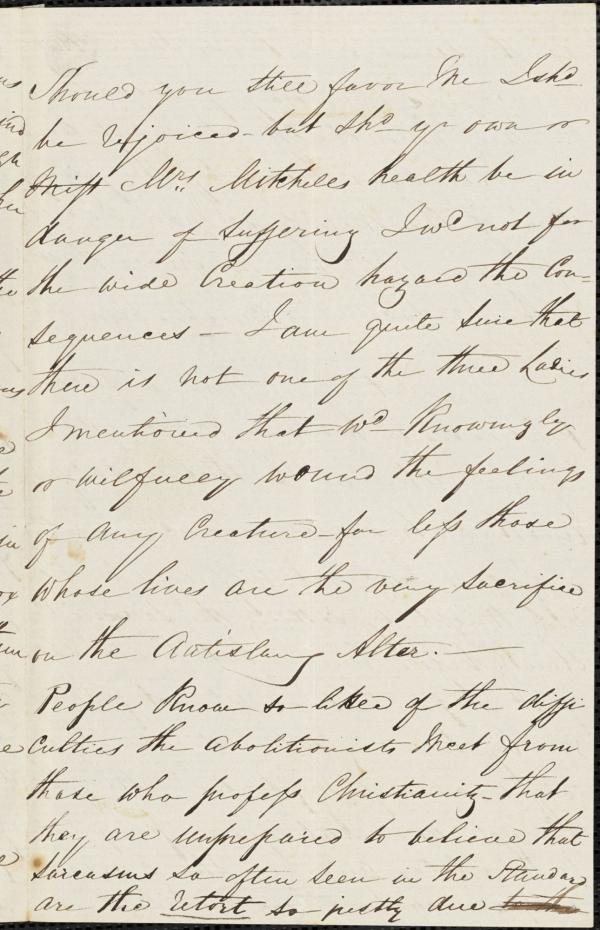 Should you still favor me I shd
be rejoiced - but shd yr own or
Mrs. Mitchells health be in
danger of suffering I wd not for
the wide Creation hazard the Con=
sequences - I am quite sure that
there is not one of the three Ladies
I mentioned that wd Knowingly
or wilfully wound the feelings
of any Creature - far less those
whose lives are the very sacrifice
on the Antislavy Alter. -
People Know so little of the diffi
culties the abolitionists meet from
those who profess Christianity - that
they are unprepared to believe that
sarcasms so often seen in the Standard
are the retort so justly due to the